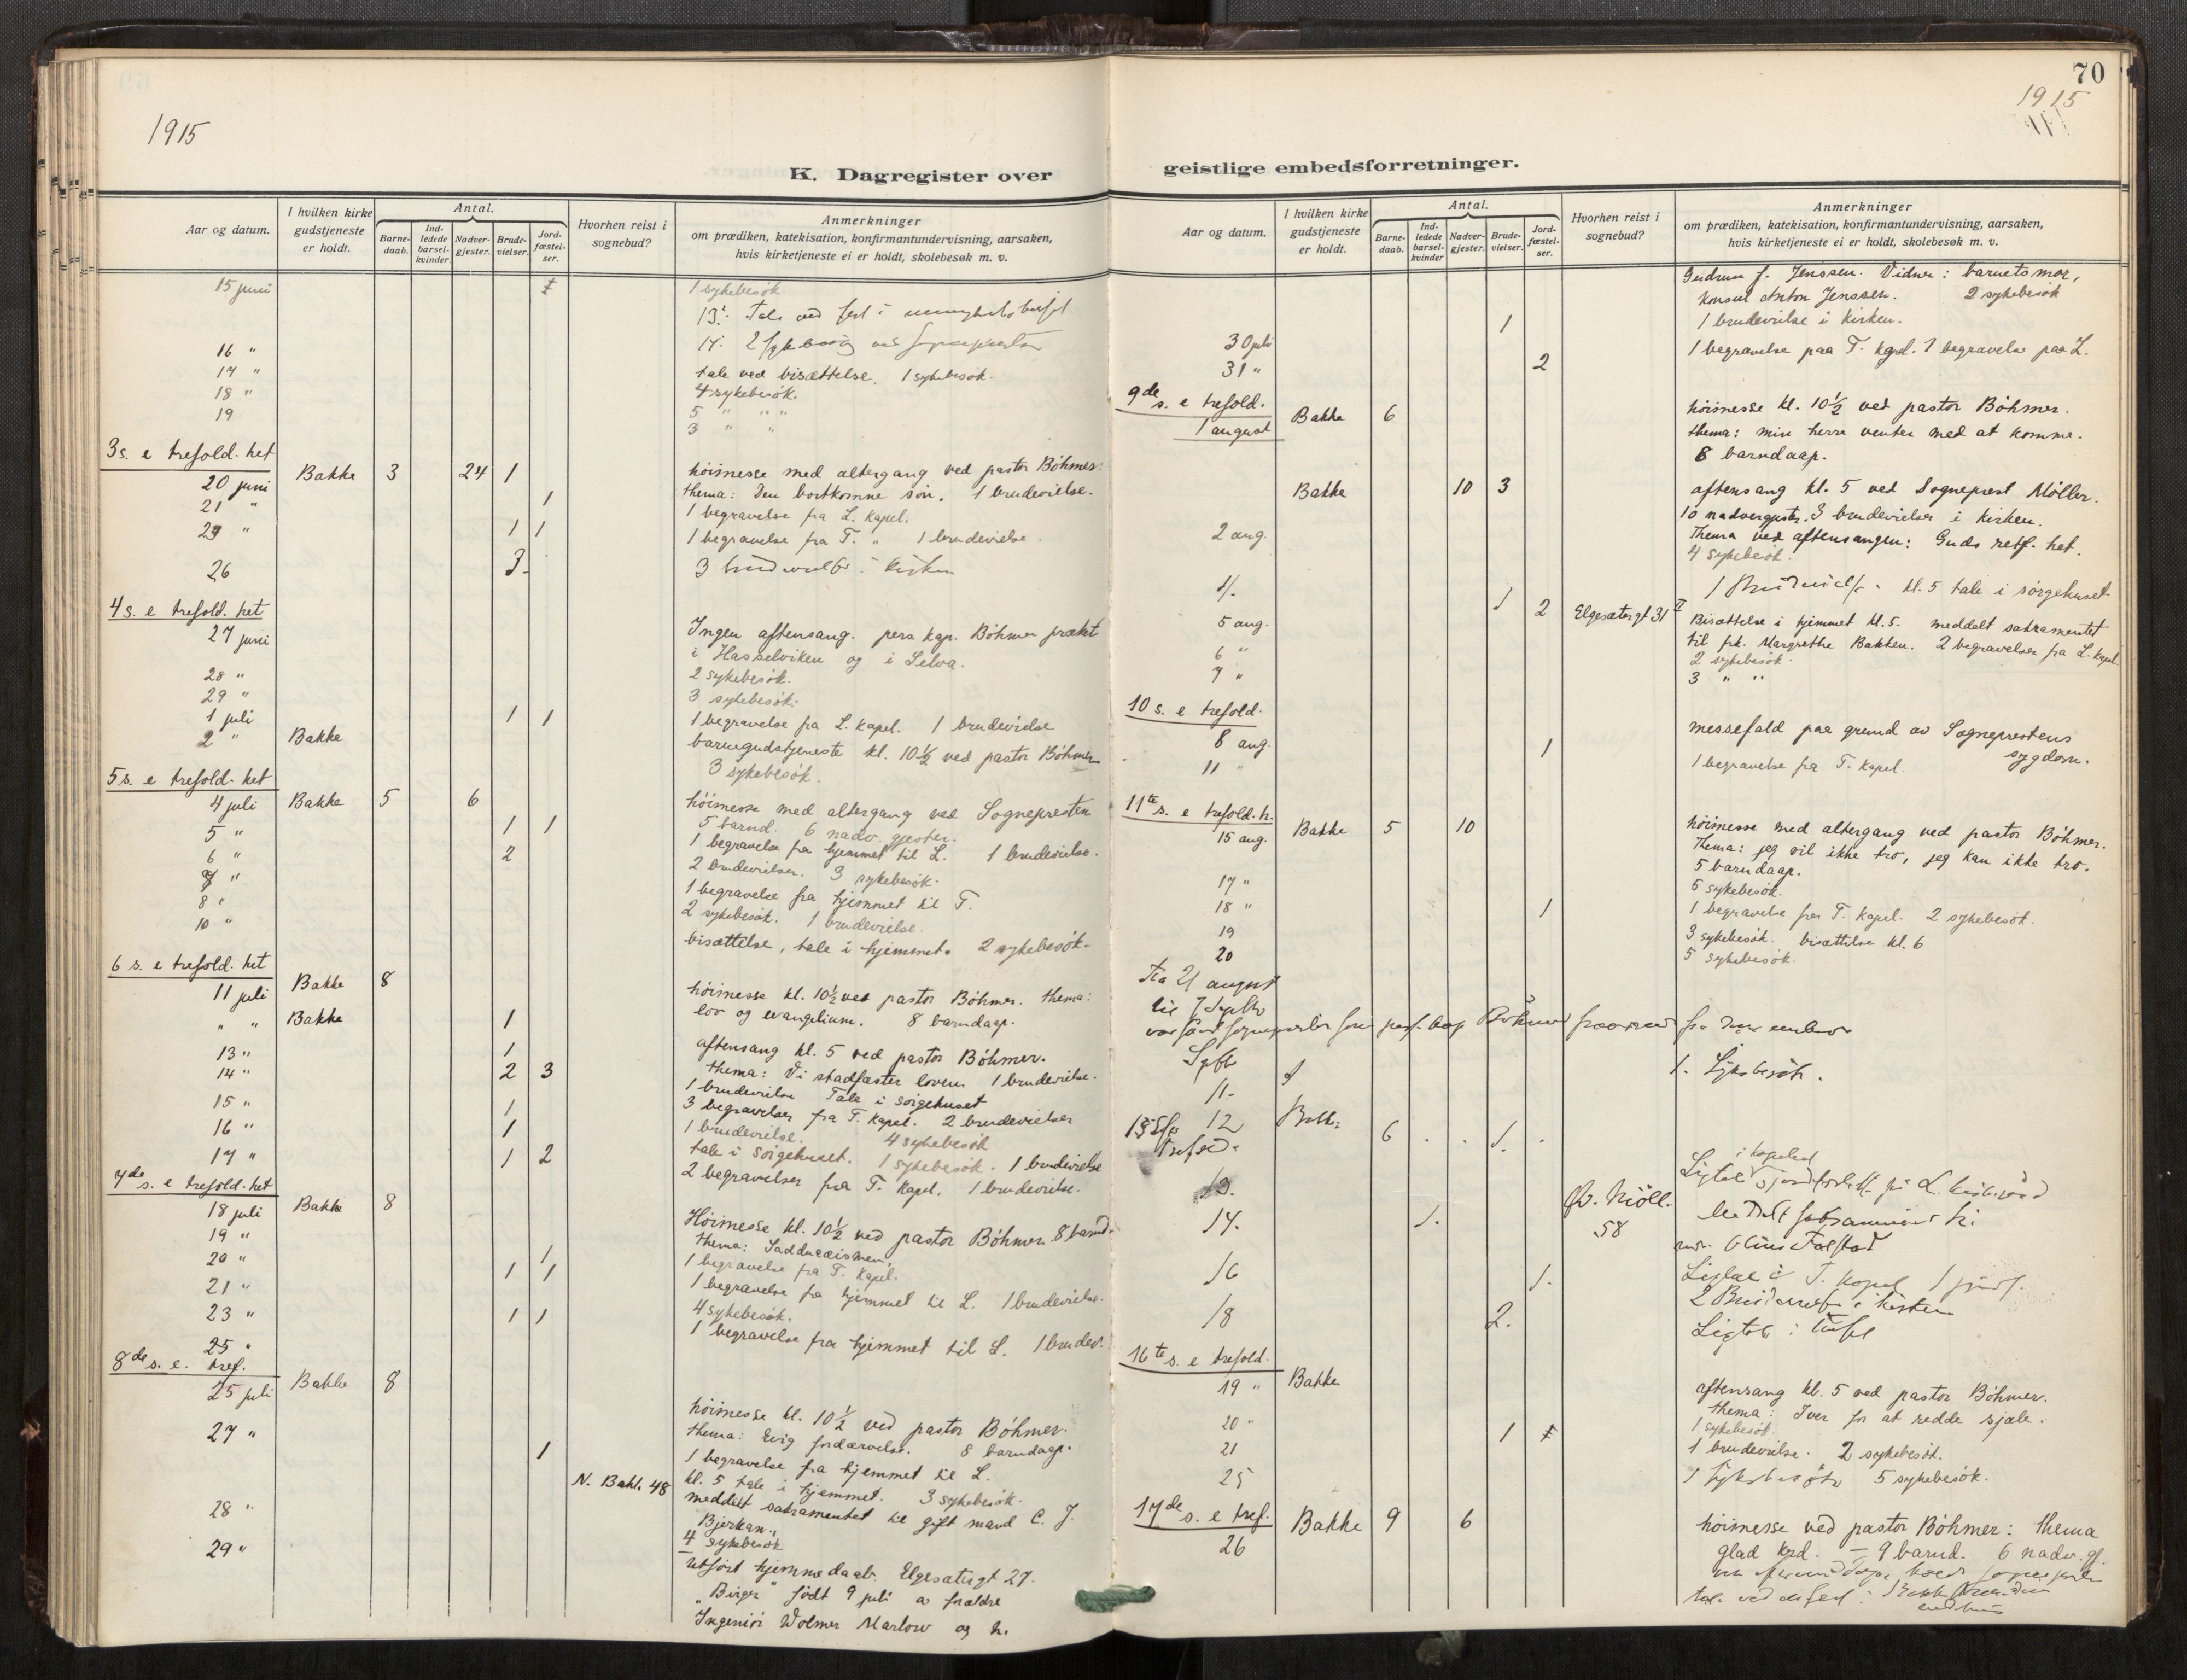 70
1915
1915
K. Dagregister over geistlige embedsforretninger.
Aar og datum.
I hvilken kirke gudstjeneste er holdt.
Antal.
Barne-daab.
Ind-ledede barsel-kvinder.
Nadver-gjester.
Brude-vielser.
Jord-fæstel-ser.
Hvorhen reist i sognebud?
Anmerkninger
om prædiken, katekisation, konfirmantundervisning, aarsaken,
hvis kirketjeneste ei er holdt, skolebesøk m. v.
15 juni 1 sykebesök.
13: Tale ved fest i
16 " 14. 2
17 " tale ved bisættelse. 1 sykebesök.
18 " 4 sykebesök.
19 5 " " "
3 " "
3 s. e trefold. het
20 juni Bakke 3 24 1 höimesse med altergang ved pastor Böhmer.
thema: Den bortkomne sön. 1 brudevielse.
21 " 1 1 begravelse fra L. kapel.
23 " 1 1 1 begravelse fra T. " 1 brudevielse.
26 3. 3 i kirken
4 s. e trefold. het
27 juni Ingen aftensang. pers. kap. Böhmer prækt
i Hasselviken og i Selva.
28 " 2 sykebesök.
29 " 3 sykebesök.
1 juli 1 1 1 begravelse fra L. kapel. 1 brudevielse
2 " Bakke barnegudstjeneste kl. 10½ ved pastor Böhmer
3 sykebesök.
5 s. e trefold. het
4 juli Bakke 5 6 höimesse med altergang ved Sognepresten
5 barnd. 6 nadv. gjester.
5 " 1 1 1 begravelse fra hjemmet til L. 1 brudevielse.
6 " 2 2 brudevielser. 3 sykebesök.
7 " 1 begravelse fra hjemmet til T.
8 " 2 sykebesök. 1 brudevielse.
10 " bisættelse, tale i hjemmet. 2 sykebesök.
6 s. e trefold. het
11 juli Bakke 8 höimesse kl. 10½ ved pastor Böhmer. thema:
lov og evangelium. 8 barndaap.
" " Bakke 1 aftensang kl. 5 ved pastor Böhmer.
thema: Vi stadfæster loven. 1 brudevielse.
13 " 1 1 brudevielse Tale i sörgehuset
14 " 2 3 3 begravelser fra T. kapel. 2 brudevielser
15 " 1 1 brudevielse. 4 sykebesök
16 " 1 tale i sörgehuset. 1 sykebesök. 1 brudevielse
17 " 1 2 2 begravelser fra T. kapel. 1 brudevielse.
7de s. e trefold. het
18 juli Bakke 8 Höimesse kl. 10½ ved pastor Böhmer. 8 barnd.
thema: Sadducæismen.
19 " 1 1 begravelse fra T. kapel.
20 " 1 1 1 begravelse fra hjemmet til L. 1 brudevielse.
21 " 4 sykebesök.
23 " 1 1 1 begravelse fra hjemmet til L. 1 brudev.
25 "
8de s. e. tref.
25 juli Bakke 8 höimesse kl. 10½ ved pastor Böhmer.
thema: Evig fordærvelse. 8 barndaap.
27 " 1 1 begravelse fra hjemmet til L.
kl. 5 tale i hjemmet. 3 sykebesök.
N. Bakl. 48 meddelt sakramentet til gift mand C. J.
Bjerkan.
28 " 4 sykebesök
29 " utfört hjemmedaab. Elgesætergt 27.
"Birger" födt 9 juli a foreldre
Ingeniör Wolmer Marlow og h.
Gudrun f. Jenssen. Vidner: barnets mor,
konsul Anton Jenssen. 2 sykebesök
30 juli 1 1 brudevielse i kirken.
31 " 2 1 begravelse paa T. kapel. 1 begravelse paa L.
9de s. e trefold.
1 august Bakke 6 höimesse kl. 10½ ved pastor Böhmer.
thema: min herre venter med at komme.
6 barndaap.
Bakke 10 3 aftensang kl. 5 ved Sogneprest Möller.
10 nadvergjester. 3 brudevielser i kirken.
Thema ved aftensangen: Guds retf. het.
2 aug. 4 sykebesök.
4/. 1 1 kl. 5 tale i sörgehuset
5 aug. 2 Elgesætergt 31 II Bisættelse i hjemmet kl. 5. meddelt sakramentet
til frk. Margrethe Bakken. 2 begravelser fra L. kapel.
6 " 2 sykebesök.
7 " 3 " "
10 s. e trefold.
8 aug. messefald paa grund av Sogneprestens
sygdom.
11 " 1 1 begravelse fra T. kapel.
11te s. e trefold. h.
15 aug. Bakke 5 10 höimesse med altergang ved pastor Böhmer.
Thema: jeg vil ikke tro, jeg kan ikke tro.
5 barndaap.
17 " 5 sykebesök.
18 " 1 1 begravelse fra T. kapel. 2 sykebesök.
19 3 sykebesök. bisættelse kl. 6
20 5 sykebesök.
Fra 21 august
til 7 Septbr
Böhmer fra
Septb
11. 1. Sykebesök.
12 6 1.
i kapellet
13.
14. 1. 58 Meddelt
16 1. T. kapel
18 2. 2 i kirken
16te s. e trefold.
19 " Bakke aftensang kl. 5 ved pastor Böhmer.
thema: Iver for at redde sjæle.
20 " 1 sykebesök.
21 1 1 brudevielse. 2 sykebesök.
25 1 5 sykebesök.
17de s. e tref.
26 Bakke 9 6 höimesse ved pastor Böhmer: thema
glad krd. – 9 barnd. 6 nadv. gj.